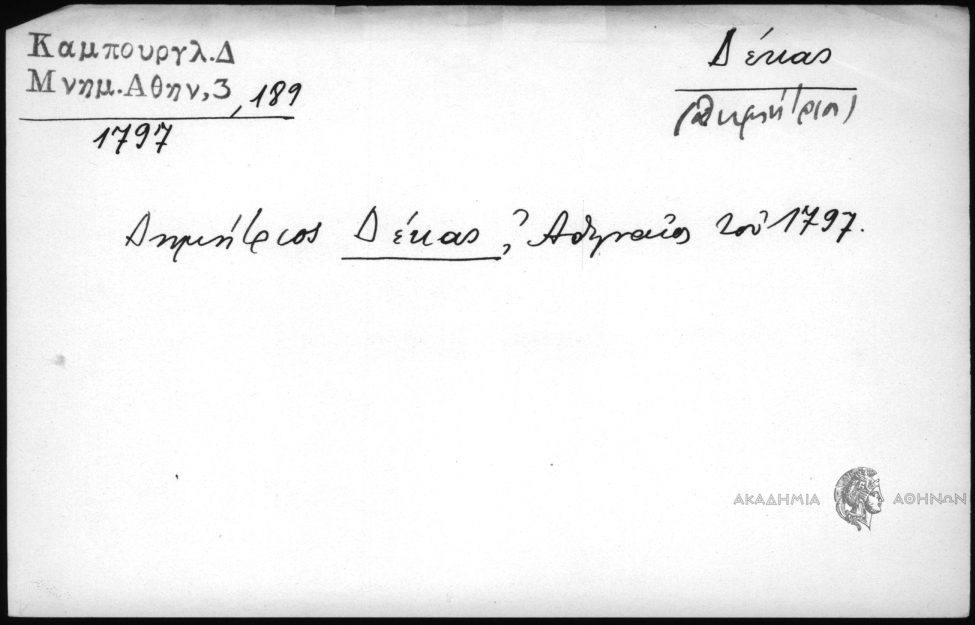 Καμπουργλ.Δ
Μνημ.Αθην,3, 189
1797
Δέκας
(Δημήτριος)
Δημήτριος Δέκας, Ἀθηναῖος τοῦ 1797.
ΑΚΑΔΗΜΙΑ ΑΘΗΝΩΝ